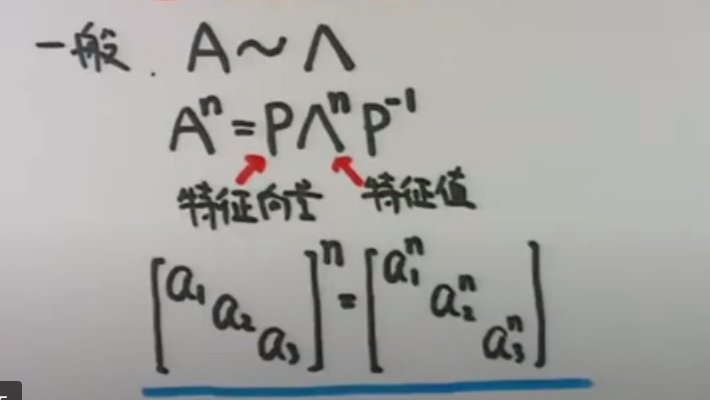 一般. A~Λ
Aⁿ=PΛⁿP⁻¹
特征向量 特征值
[a₁ a₂ a₃]ⁿ=[a₁ⁿ a₂ⁿ a₃ⁿ]